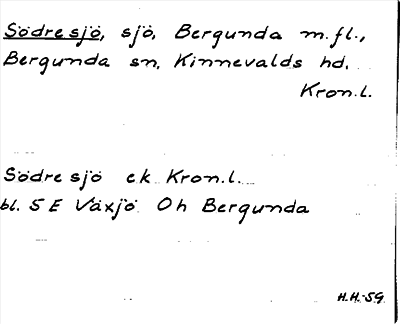 Södresjö, sjö, Bergunda m.fl.,
Bergunda sn. Kinnevalds hd.
Kron.l.
Södresjö ek Kron.l.
bl. 5 E Växjö Oh Bergunda
H.H.-59